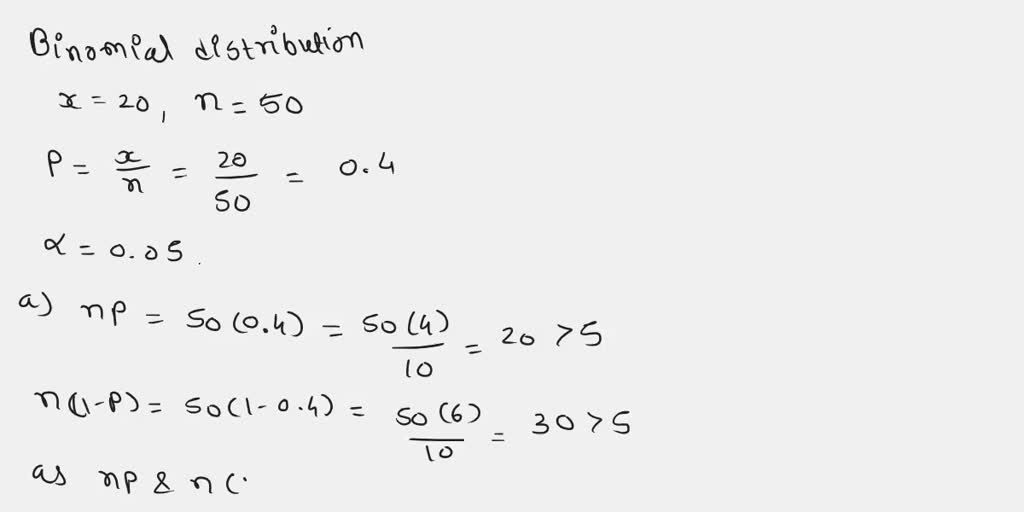 Binomial distribution
x = 20, n = 50
P = x/n = 20/50 = 0.4
α = 0.05.
a) np = 50(0.4) = 50(4)/10 = 20 > 5
n(1-P) = 50(1-0.4) = 50(6)/10 = 30 > 5
as np & n(